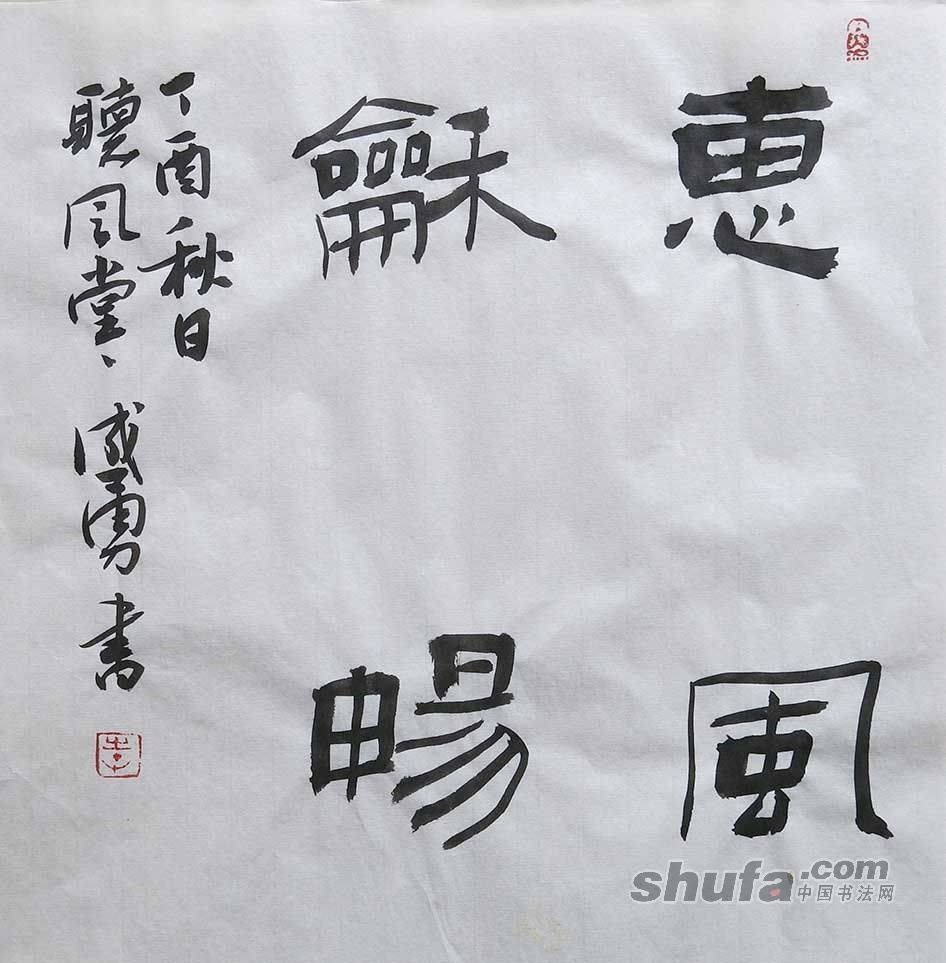 惠風
龢暢
丁酉秋日
聽风堂、成勇书
shufa.com
中国书法网